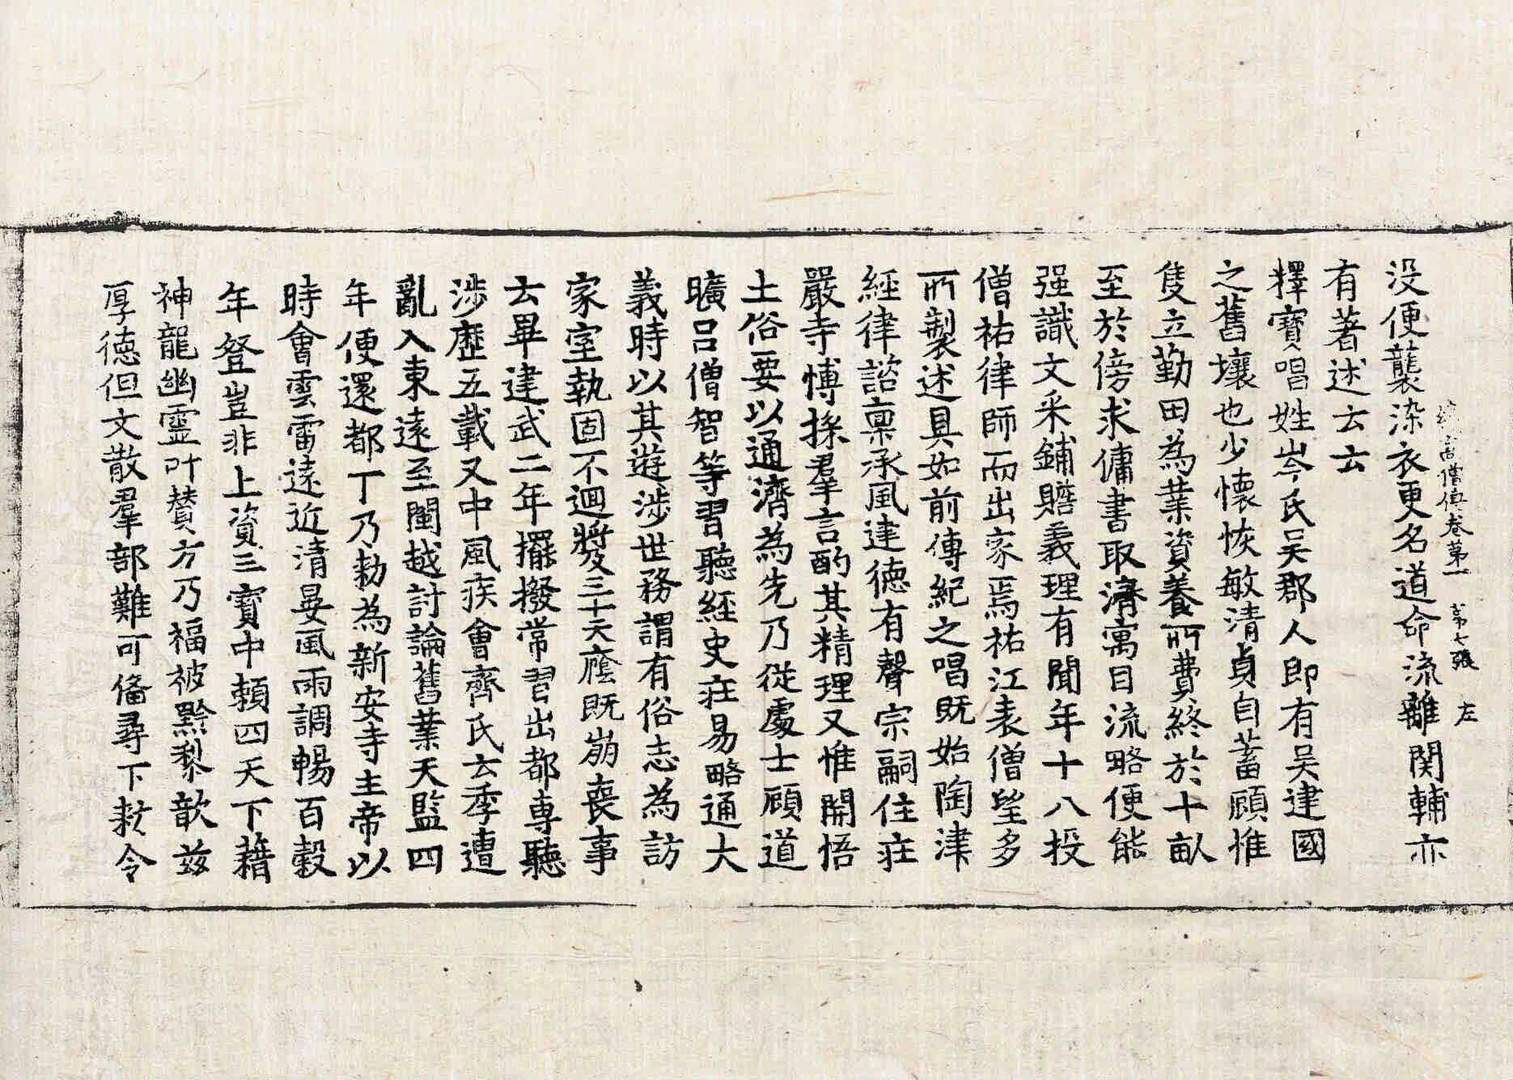 續高僧傳卷第一　第七張　左
没便襲染衣更名道命流離関輔亦
有著述云云
釋寶唱姓岑氏吴郡人即有吴建國
之舊壤也少懷恢敏清貞自蓄顧惟
隻立勤田為業資養所費終於十畝
至於傍求傭書取濟寓目流略便能
强識文采鋪贍義理有聞年十八投
僧祐律師而出家焉祐江表僧望多
所製述具如前傳紀之唱既始陶津
經律諮禀承風建德有聲宗嗣住莊
嚴寺博採羣言酌其精理又惟開悟
土俗要以通濟為先乃從處士顧道
曠呂僧智等習聽經史莊易略通大
義時以其遊涉世務謂有俗志為訪
家室執固不迴將及三十天廕既崩喪事
云畢建武二年擺撥常習出都專聽
涉歷五載又中風疾會齊氏云季遭
亂入東遠至閩越討論舊業天監四
年便還都下乃勑為新安寺主帝以
時會雲雷遠近清晏風雨調暢百穀
年登豈非上資三寶中賴四天下藉
神龍幽靈叶賛方乃福被黔黎歆兹
厚德但文散羣部難可俻尋下敕令